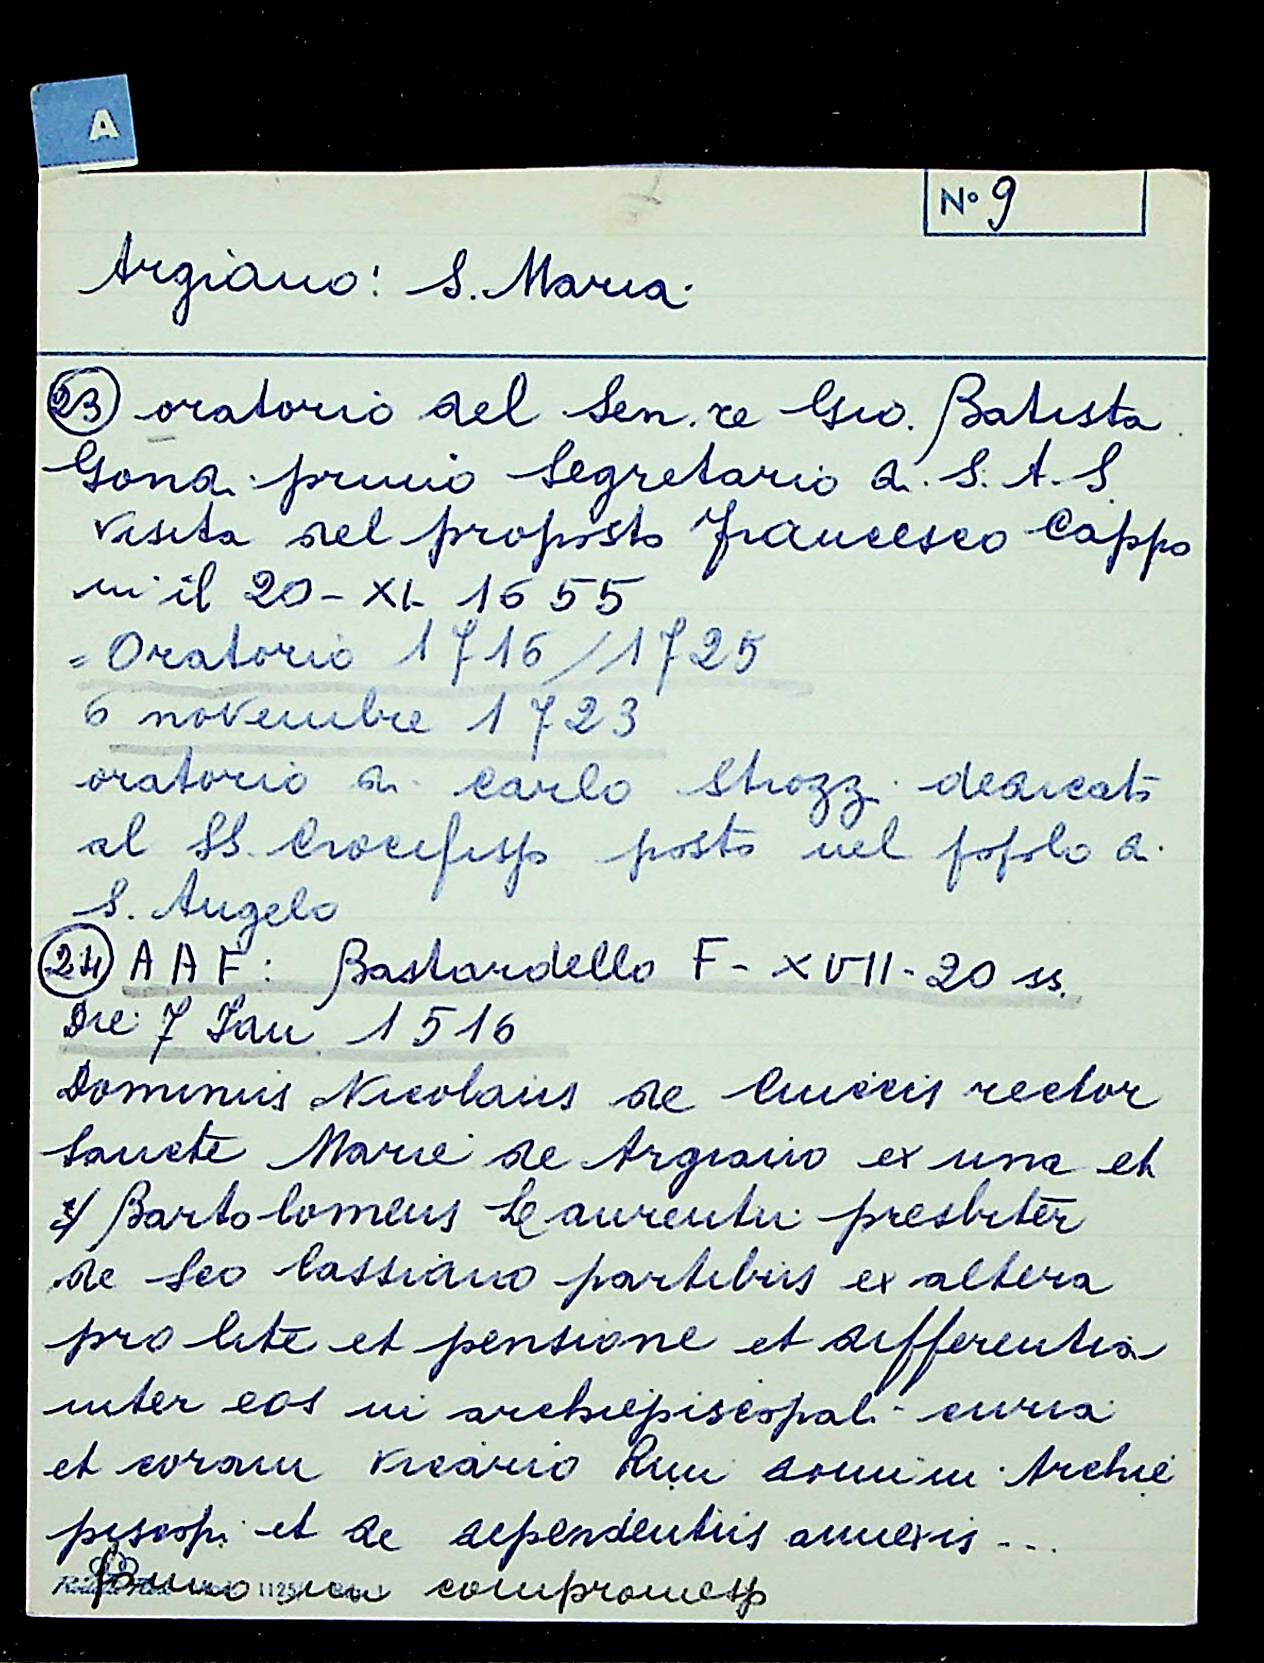 A
Nº 9
Argiano: S. Maria
23 oratorio del Sen.re Gio. Batista
Gondi primo Segretario di S. A. S.
visita del proposto Francesco Cappo
ni il 20 - XI - 1655
= Oratorio 1716/1725
6 novembre 1723
oratorio di Carlo Strozzi dedicato
al SS. Crocifisso posto nel popolo di
S. Angelo
24 A A F: Bastardello F - XVII - 20 ss.
Die 7 Ian 1516
Dominus Nicolaus de rector
Sancte Marie de Argiano ex una et
Bartolomeus Laurentii presbiter
de Sco Cassiano partibus ex altera
pro lite et pensione et differentia
inter eos in archiepiscopali curia
et coram vicario Rmi domini Archie
piscopi et de dependentiis annexis ...
fanno un compromesso